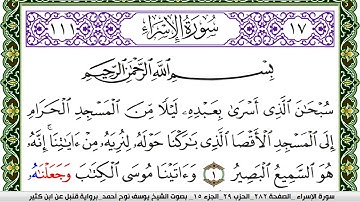 ١٧ سُورَةُ الإِسْرَاءِ ١١١
بِسْمِ اللَّهِ الرَّحْمَٰنِ الرَّحِيمِ
سُبْحَانَ الَّذِي أَسْرَىٰ بِعَبْدِهِ لَيْلًا مِنَ الْمَسْجِدِ الْحَرَامِ
إِلَى الْمَسْجِدِ الْأَقْصَا الَّذِي بَارَكْنَا حَوْلَهُ لِنُرِيَهُ مِنْ ءَايَاتِنَا إِنَّهُ
هُوَ السَّمِيعُ الْبَصِيرُ ١ وَءَاتَيْنَا مُوسَى الْكِتَابَ وَجَعَلْنَاهُ
سورة الإسراء الصفحة ٢٨٢ الحزب ٢٩ الجزء ١٥ بصوت الشيخ يوسف نوح أحمد برواية قنبل عن ابن كثير